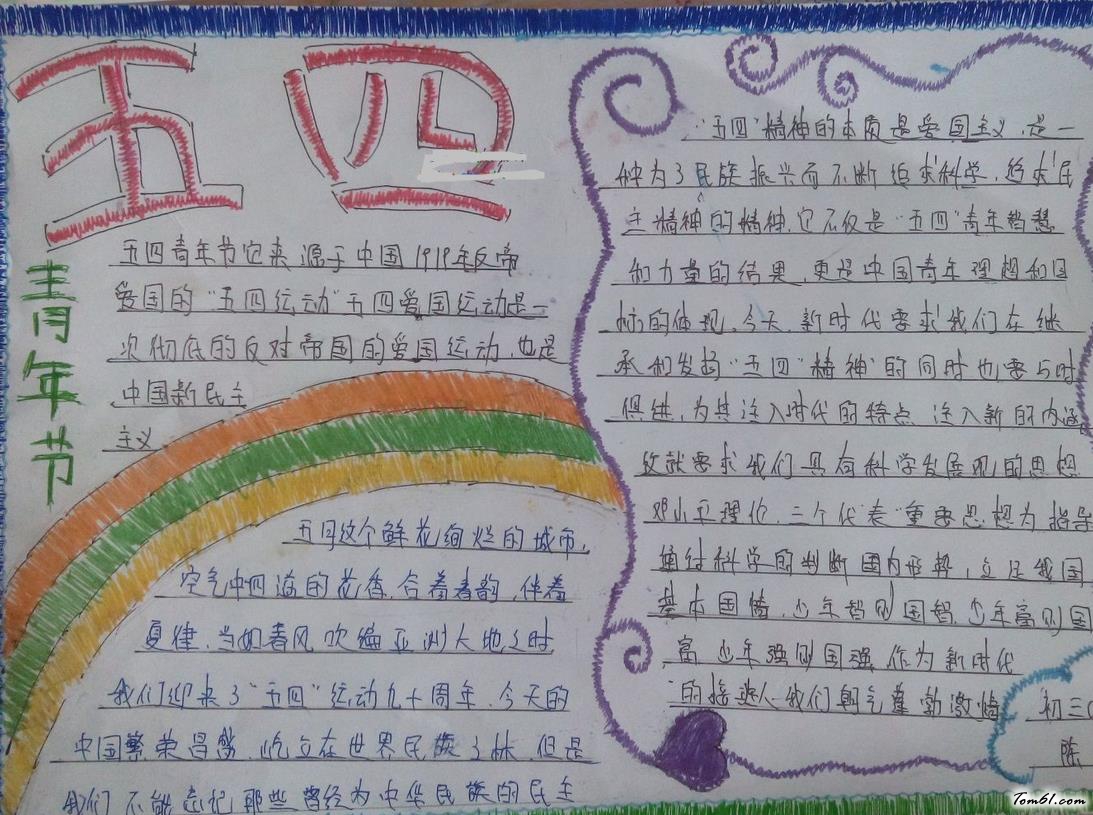 五四
青年节
五四青年节它来源于中国1919年反帝
爱国的“五四运动”五四爱国运动是一
次彻底的反对帝国的爱国运动,也是
中国新民主
主义
五月这个鲜花绚烂的城市,
空气中四溢的花香,合着春韵,伴着
夏律,当如春风吹遍亚洲大地之时
我们迎来了“五四”运动九十周年,今天的
中国繁荣昌盛,屹立在世界民族之林,但是
我们不能忘记那些曾经为中华民族的民主
“五四”精神的本质是爱国主义,是一
种为了民族振兴而不断追求科学,追求民
主精神的精神,它不仅是“五四”青年智慧
和力量的结果,更是中国青年理想和目
标的体现,今天,新时代要求我们在继
承和发扬“五四”精神”的同时也要与时
俱进,为其注入时代的特点,注入新的内涵
这就要求我们具有科学发展观的思想
邓小平理论,三个代表”重要思想为指导
通过科学的判断国内形势,立足我国
基本国情,少年智则国智,少年富则国
富,少年强则国强,作为新时代
的接班人我们朝气蓬勃激情
初三
陈
Tom61.com